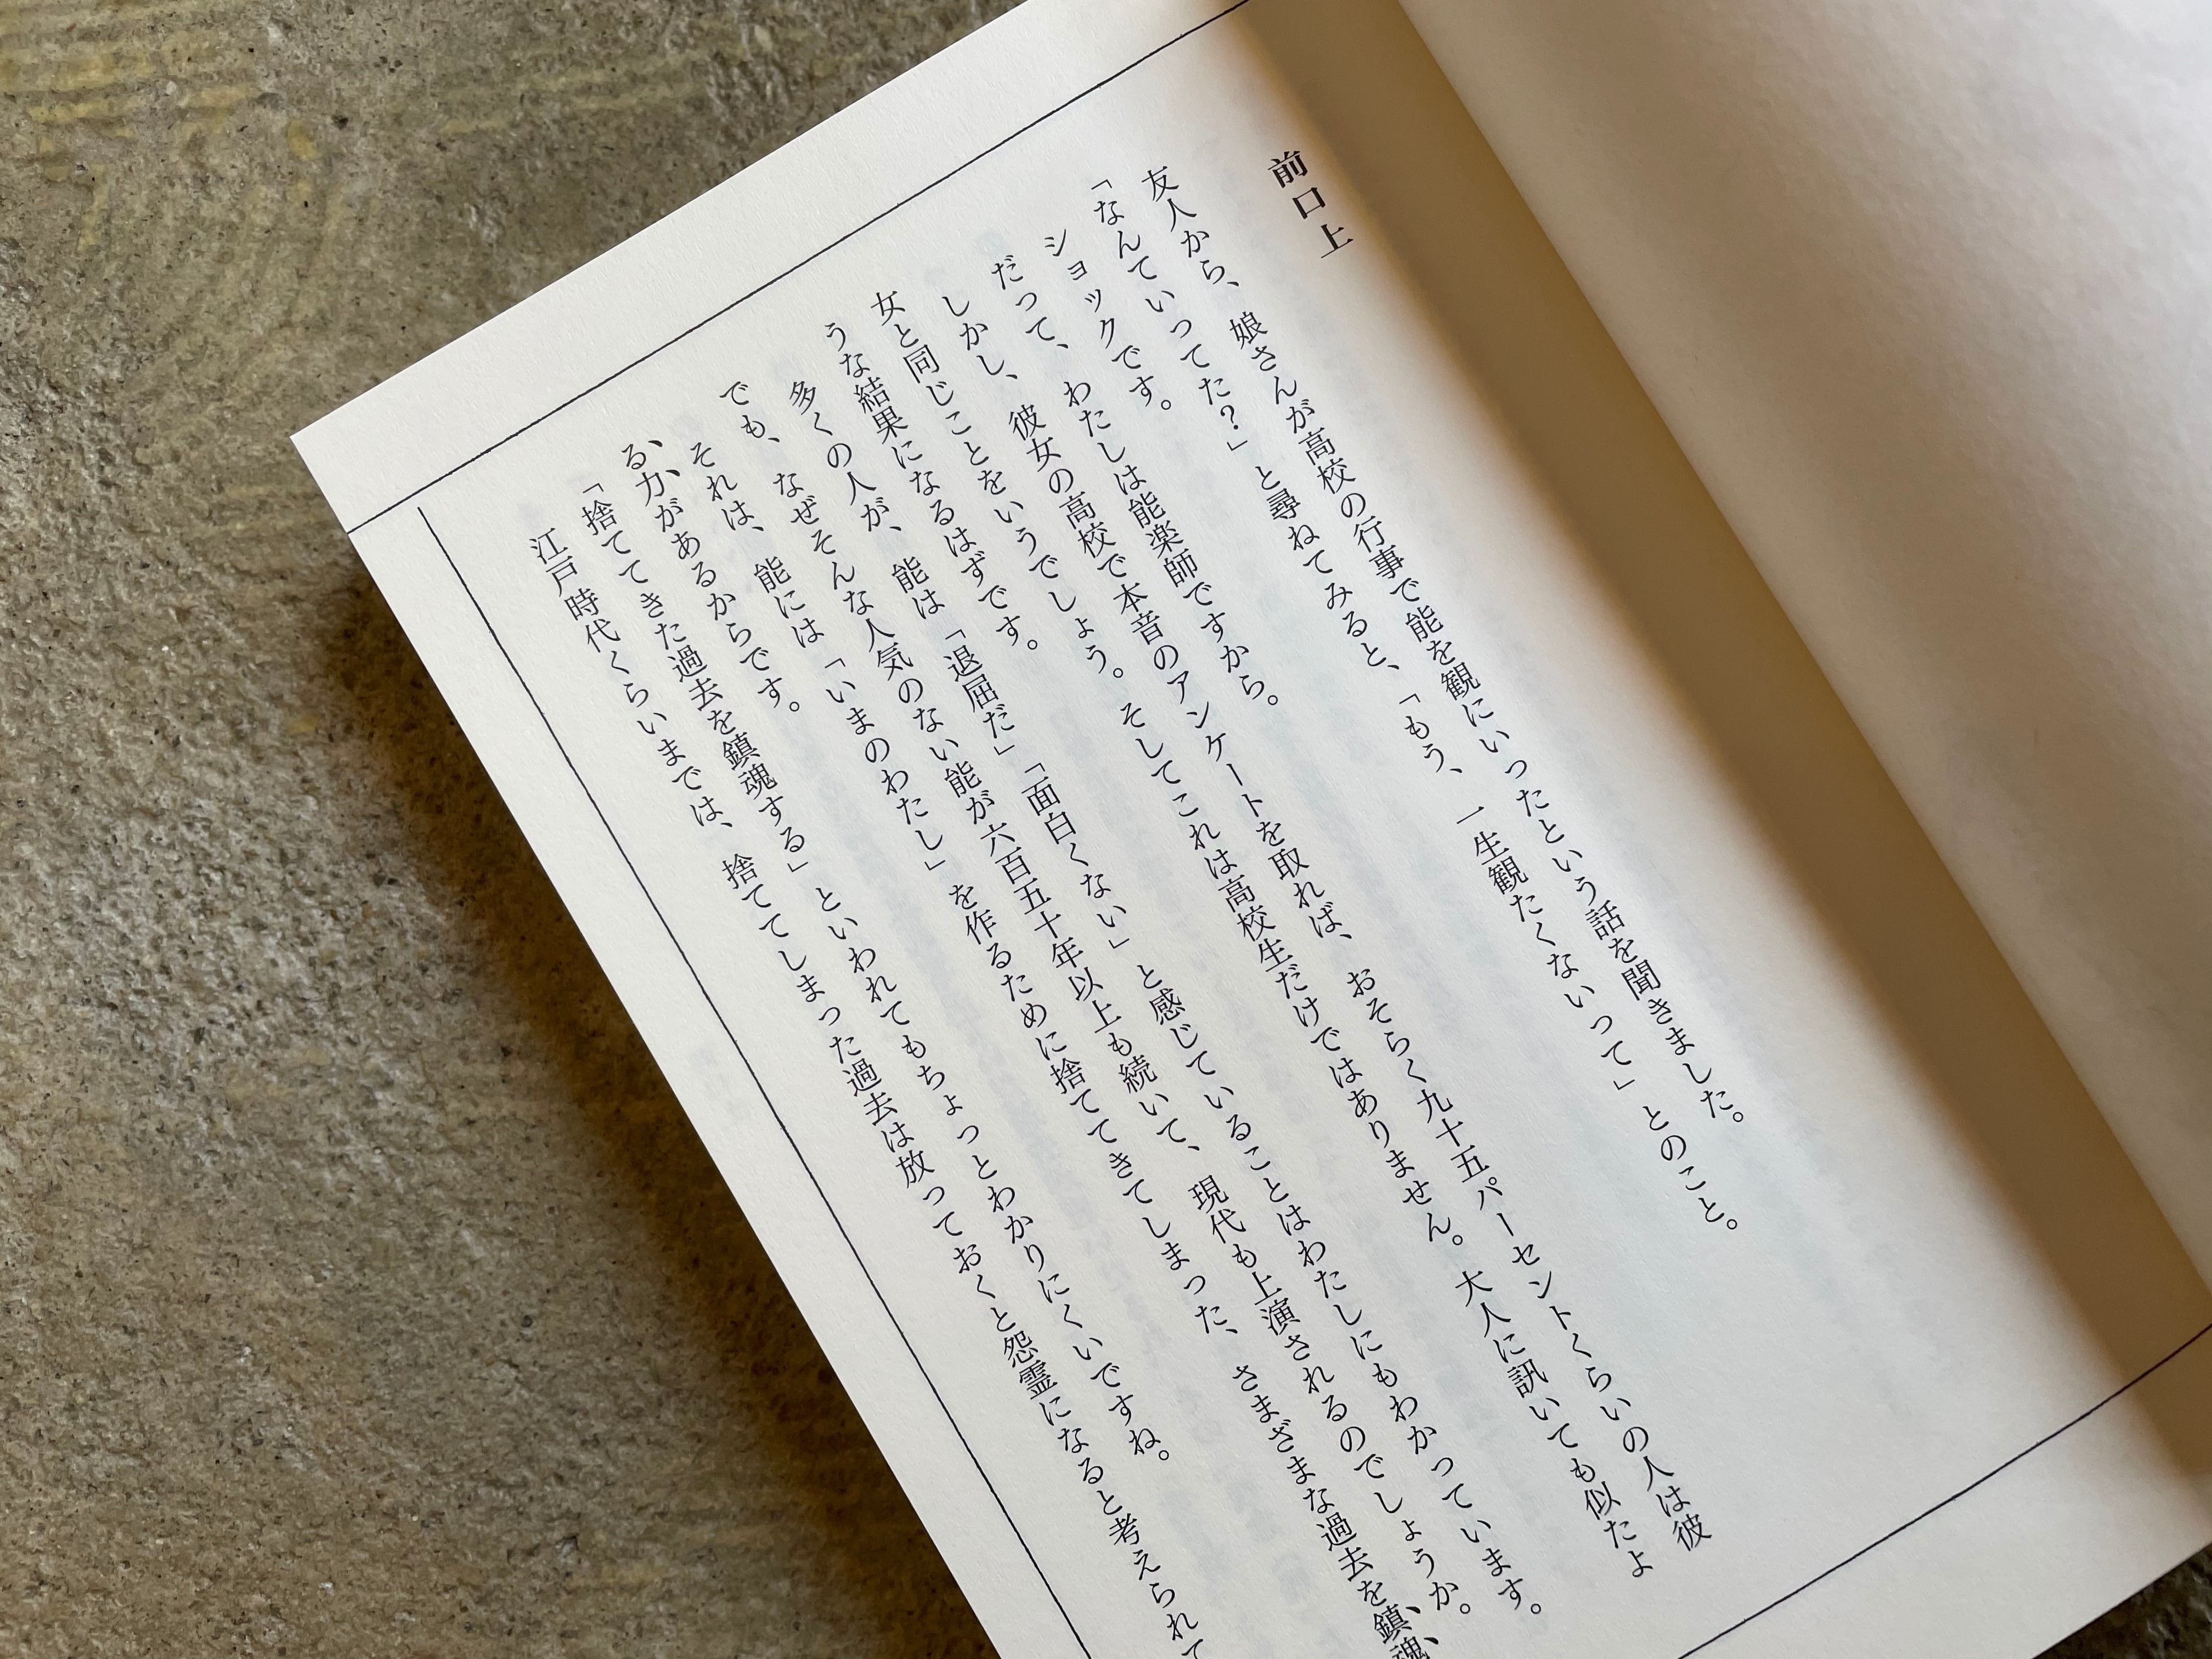 前口上
友人から、娘さんが高校の行事で能を観にいったという話を聞きました。
「なんていってた？」と尋ねてみると、「もう、一生観たくないって」とのこと。
ショックです。
だって、わたしは能楽師ですから。
しかし、彼女の高校で本音のアンケートを取れば、おそらく九十五パーセントくらいの人は彼
女と同じことをいうでしょう。そしてこれは高校生だけではありません。大人に訊いても似たよ
うな結果になるはずです。
多くの人が、能は「退屈だ」「面白くない」と感じていることはわたしにもわかっています。
でも、なぜそんな人気のない能が六百五十年以上も続いて、現代も上演されるのでしょうか。
それは、能には「いまのわたし」を作るために捨ててきてしまった、さまざまな過去を鎮魂
る力があるからです。
「捨ててきた過去を鎮魂する」といわれてもちょっとわかりにくいですね。
江戸時代くらいまでは、捨ててしまった過去は放っておくと怨霊になると考えられて